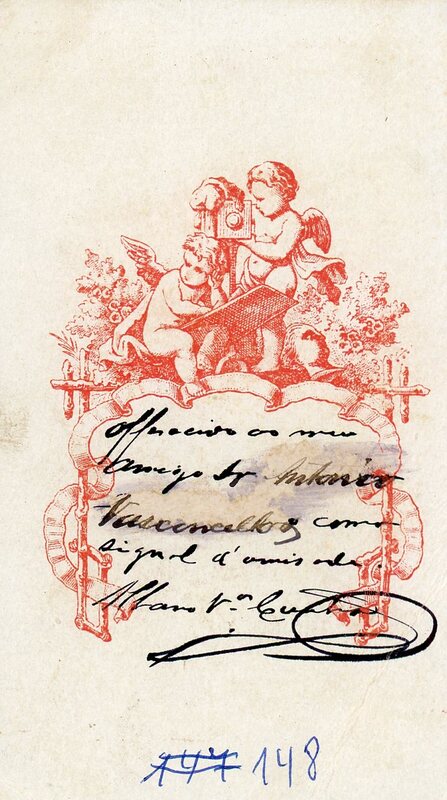 Offerecido ao meu
Amigo Sr Antonio
Vasconcellos como
signal d'amisade.
Alvaro
148